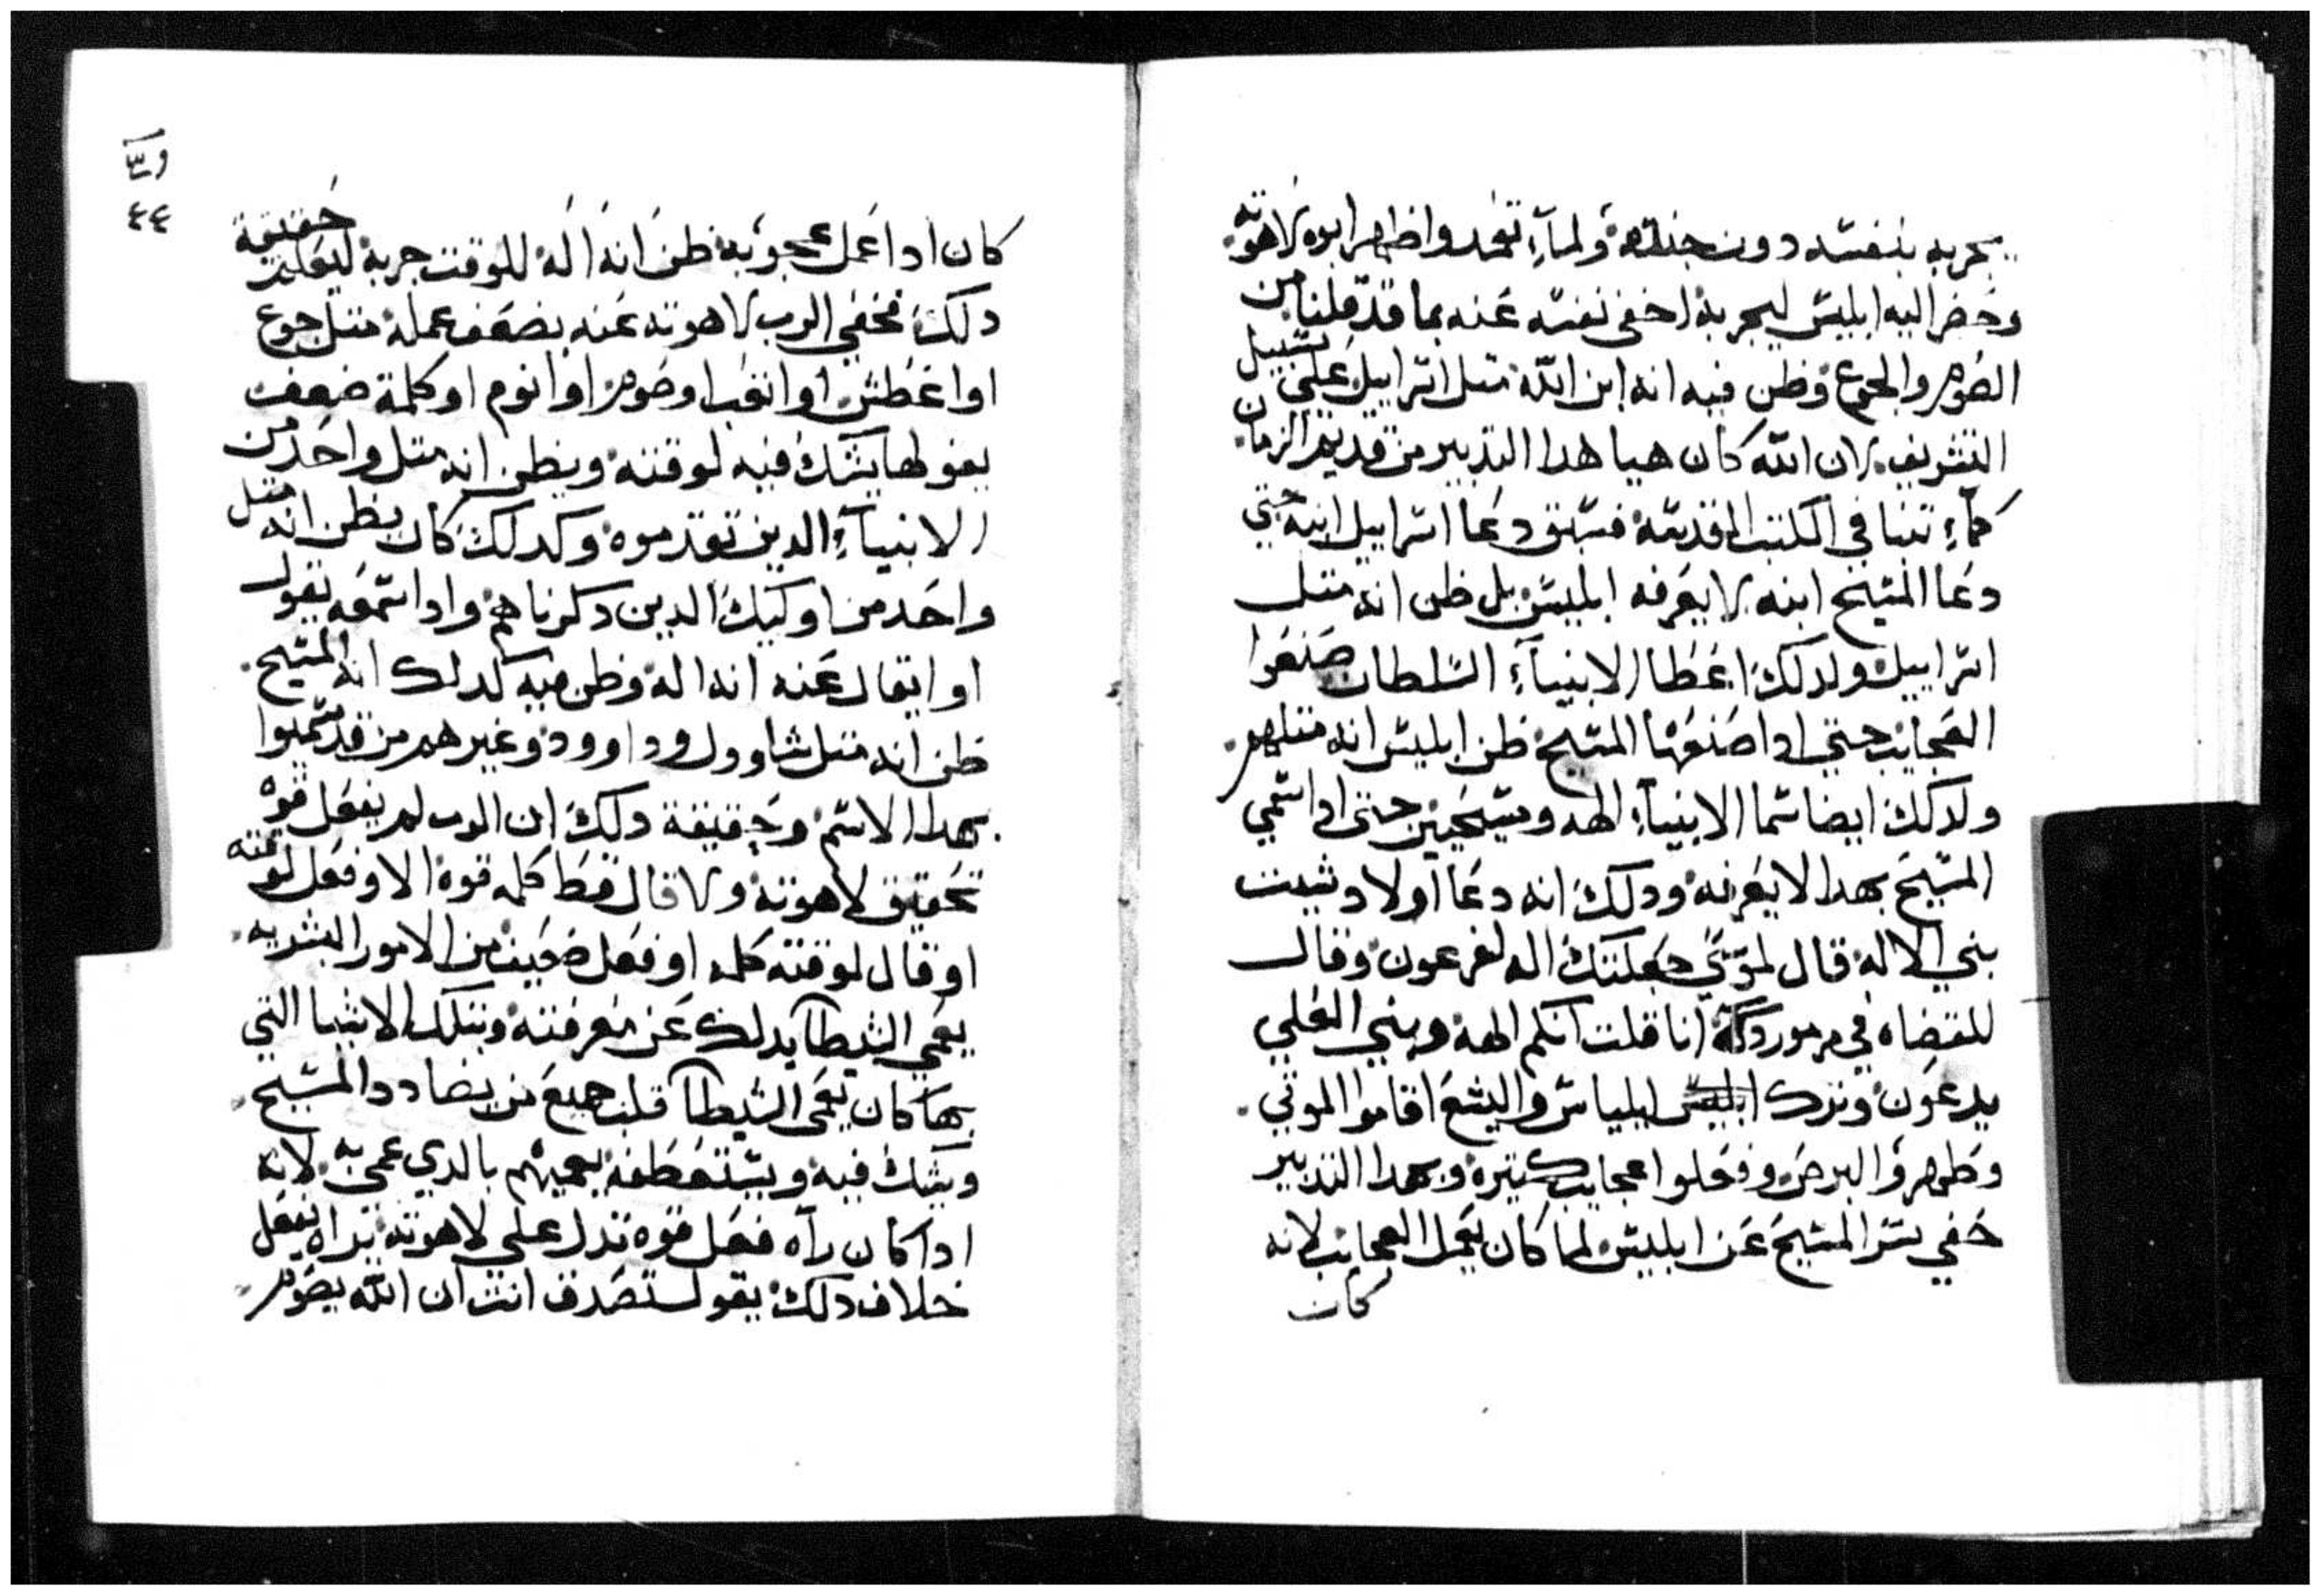 يجربه بنفسه دون جنده ولمآء تعمد واظهر ابوه لاهوته
وحضر اليه ابليس ليجربه اخفى نفسه عنه بما قد قلنا من
الصوم والجوع وظن فيه انه ابن الله متل اسراييل على سبيل
التشريف لان الله كان هيا هدا التدبير من قديم الزمان
كمآء تنبا في الكتب المقدسه فسبق دعا اسراييل ابنه حتي
دعا المسيح ابنه لا يعرفه ابليس بل ظن انه متل
اسراييل ولدلك اعطا الانبيآء السلطان صنعوا
العجايب حتي ادا صنعها المسيح ظن ابليس انه متلهم
ولدلك ايضا سما الانبيآء الهه ومسيحيين حتى ادا سمي
المسيح بهدا لا يعرفه ودلك انه دعا اولاد شيت
بني الاله قال لموسي جعلتك اله لفرعون وقال
للقضاه في مزمور انا قلت انكم الهه وبني العلي
يدعون وترك ايلياس واليشع اقاموا الموتي
وطهروا البرص وفعلوا عجايب كتيرة وبهدا التدبير
خفي ستر المسيح عن ابليس لما كان يعمل العجايب لانه
كان
٤٤
كان ادا عمل عجوبه ظن انه اله للوقت جربه ليعلم حقيقة
دلك فخفي الرب لاهوته عنه بضعف عمله متل جوع
او اعطش او اتعب او صوم او انوم او كلمة ضعف
يقولها يشك فيه لوقته ويظن انه متل واحد من
الانبيآء الدين تقدموه وكدلك كان يظن انه متل
واحد من اوليك الدين دكرناهم وادا سمعه يقول
او ايقال عنه انه اله وظن فيه كدلك انه المسيح
ظن انه متل شاوول وداوود وغيرهم من قد سميوا
بهدا الاسم وحقيقة دلك ان الرب لم يفعل قوه
تحقيق لاهوته ولا قال قط كلمه قوة الا وفعل لوقته
او قال لوقته كلمه او فعل ضعيف من الامور البشريه
يعمي الشيطان بدلك عن معرفته وبتلك الاشيا التي
بها كان يعمي الشيطان قلب جميع من يضادد المسيح
ويشك فيه ويستعطفه يعميهم بالدي عمي به لانه
ادا كان رآه فعل قوه تدل علي لاهوته يراه يفعل
خلاف دلك يقول ستصدق انت ان الله يصوم